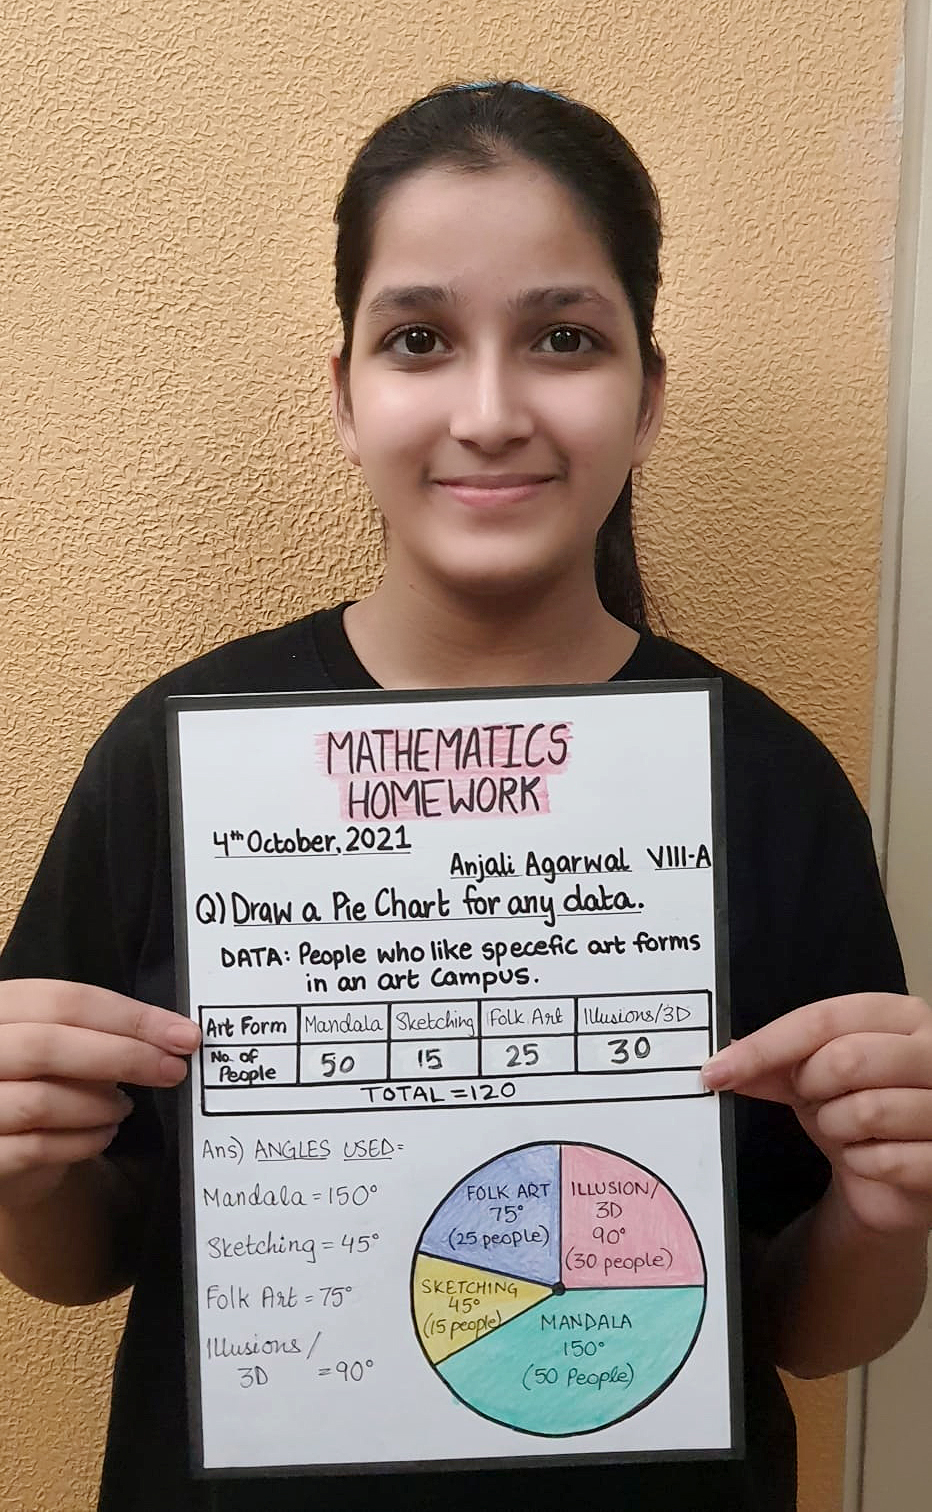 MATHEMATICS
HOMEWORK
4th October, 2021
Anjali Agarwal VIII-A
Q) Draw a Pie Chart for any data.
DATA: People who like specefic art forms
in an art Campus.
Art Form Mandala Sketching Folk Art Illusions/3D
No. of People 50 15 25 30
TOTAL = 120
Ans) ANGLES USED =
Mandala = 150°
Sketching = 45°
Folk Art = 75°
Illusions/
3D = 90°
FOLK ART
75°
(25 people)
ILLUSION/
3D
90°
(30 people)
SKETCHING
45°
(15 people)
MANDALA
150°
(50 People)